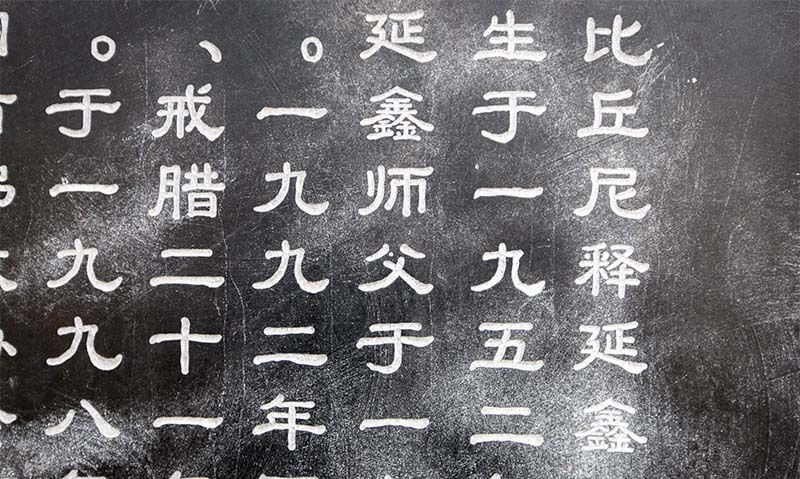 比丘尼释延鑫
生于一九五二
延鑫师父于一
。一九九二年
、戒腊二十一
。于一九九八